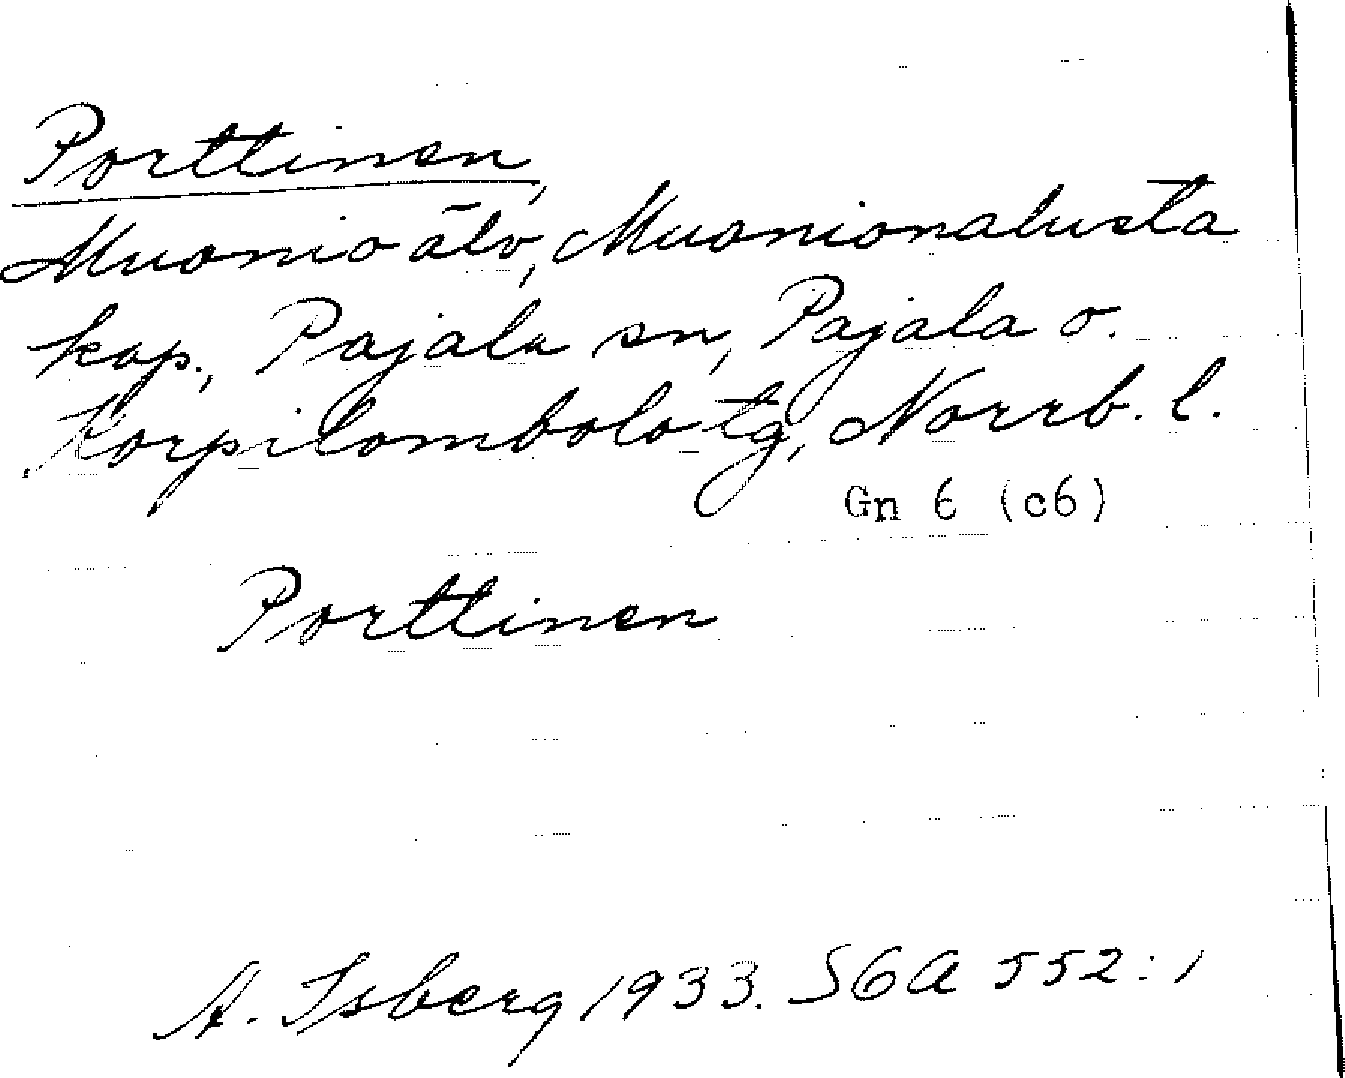 Porttinen,
Muonio älv, Muonionalusta
kap., Pajala sn, Pajala o.
Korpilombolo tg, Norrb. l.
Gn 6 (c6)
Porttinen
A. Isberg 1933. SGA 552:1